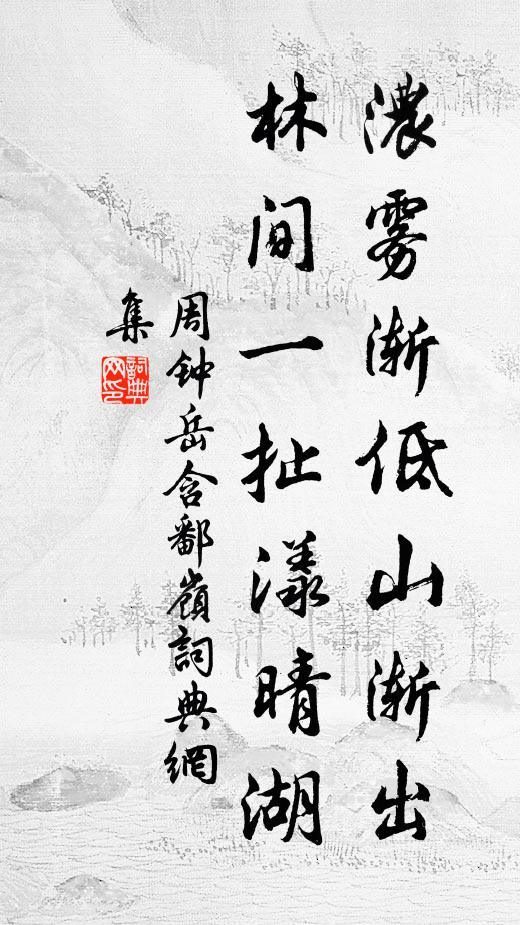 濃雾渐低山渐出
林间一扯漾晴湖
周钟岳含鄱嶺詞典網
集
詞典网印